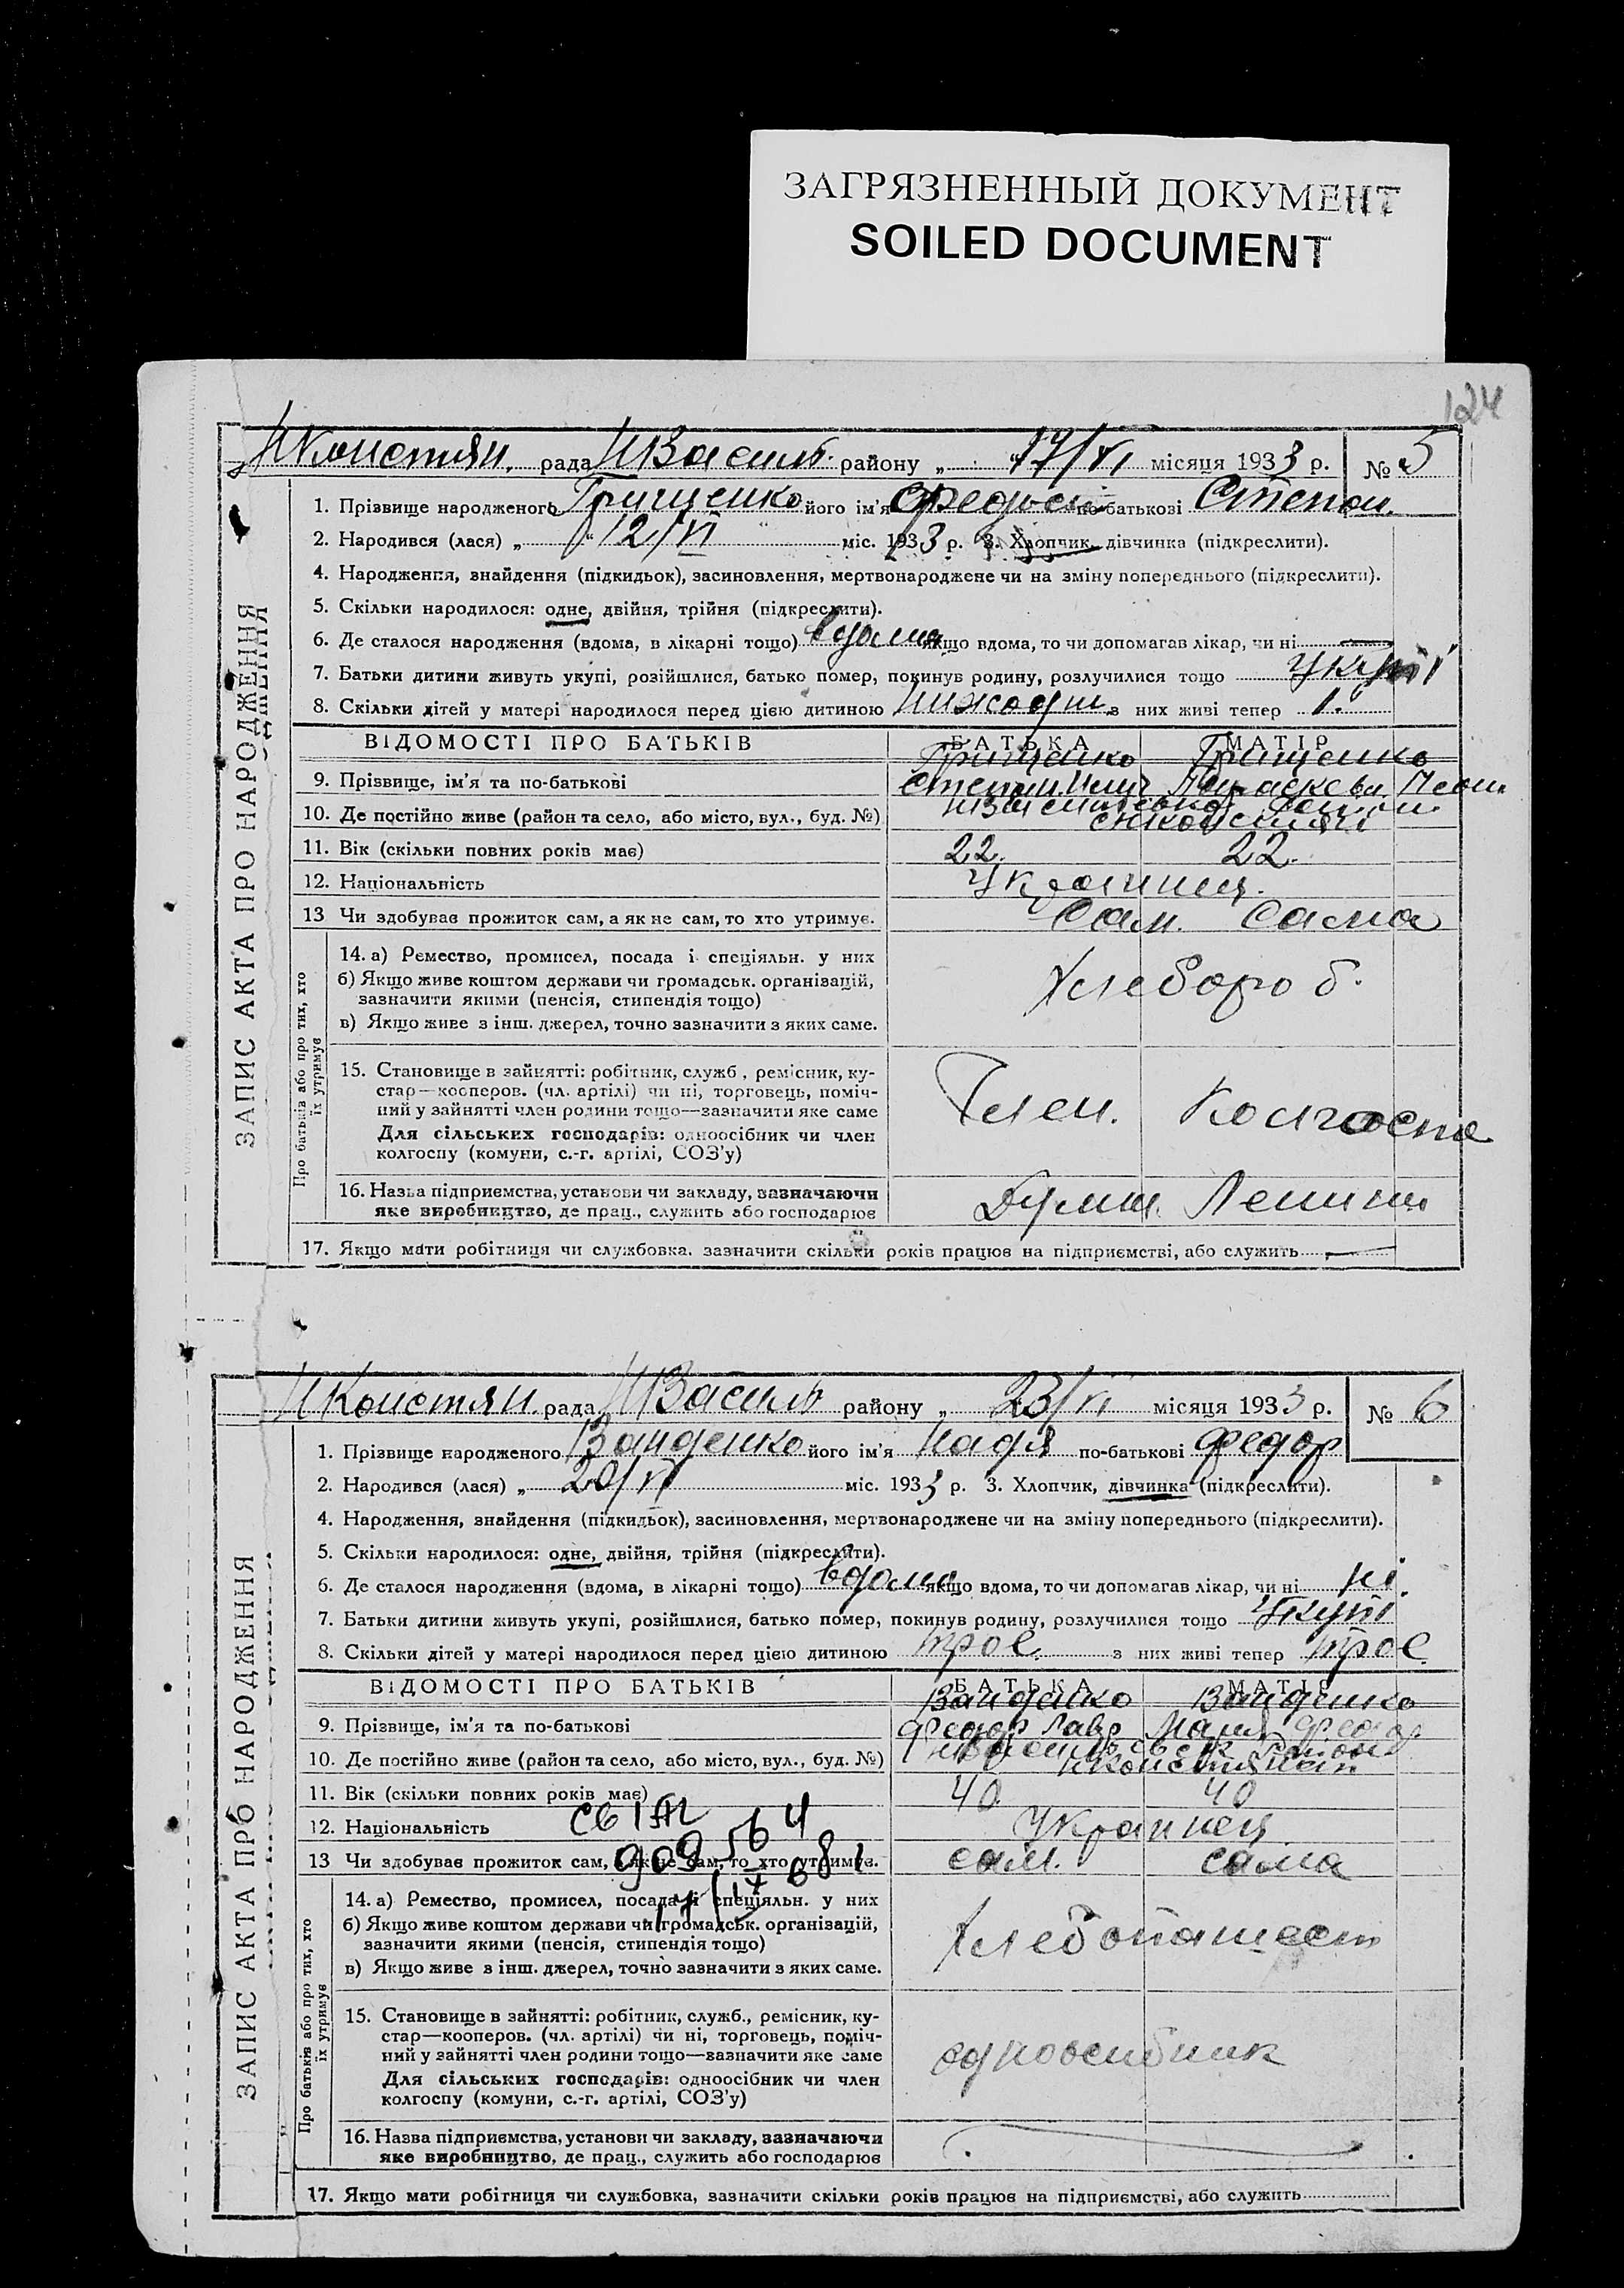 ЗАГРЯЗНЕННЫЙ ДОКУМЕНТ
SOILED DOCUMENT
124
ЗАПИС АКТА ПРО НАРОДЖЕННЯ
НКонстян. рада НВасиль. району „ 17/VI місяця 1933 р. № 5
1. Прізвище народженого Грищенко його ім'я по-батькові Степан.
2. Народився (лася) „ 12/VI міс. 1933 р. 3. Хлопчик, дівчинка (підкреслити).
4. Народження, знайдення (підкидьок), засиновлення, мертвонароджене чи на зміну попереднього (підкреслити).
5. Скільки народилося: одне, двійня, трійня (підкреслити).
6. Де сталося народження (вдома, в лікарні тощо) вдома якщо вдома, то чи допомагав лікар, чи ні
7. Батьки дитини живуть укупі, розійшлися, батько помер, покинув родину, розлучилися тощо укупі
8. Скільки дітей у матері народилося перед цією дитиною з них живі тепер 1.
ВІДОМОСТІ ПРО БАТЬКІВ БАТЬКА МАТІР
Грищенко Грищенко
9. Прізвище, ім'я та по-батькові Степан
10. Де постійно живе (район та село, або місто, вул., буд. №)
11. Вік (скільки повних років має) 22. 22.
12. Національність
13 Чи здобуває прожиток сам, а як не сам, то хто утримує. Сам. Сама
Про батьків або про тих, хто їх утримує
14. а) Ремество, промисел, посада і спеціяльн. у них
б) Якщо живе коштом держави чи громадськ. організацій,
зазначити якими (пенсія, стипендія тощо)
в) Якщо живе з інш. джерел, точно зазначити з яких саме.
Хлебороб.
15. Становище в зайнятті: робітник, служб., ремісник, ку-
стар—кооперов. (чл. артілі) чи ні, торговець, поміч-
ний у зайнятті член родини тощо—зазначити яке саме
Для сільських господарів: одноосібник чи член
колгоспу (комуни, с.-г. артілі, СОЗ'у)
Член. Колгоспа
16. Назва підприємства, установи чи закладу, зазначаючи
яке виробництво, де прац., служить або господарює
17. Якщо мати робітниця чи службовка, зазначити скільки років працює на підприємстві, або служить
ЗАПИС АКТА ПРО НАРОДЖЕННЯ
НКонстян. рада НВасиль району „ 23/VI місяця 1933 р. № 6
1. Прізвище народженого його ім'я Надя по-батькові Федор
2. Народився (лася) „ 20/VI міс. 1933 р. 3. Хлопчик, дівчинка (підкреслити).
4. Народження, знайдення (підкидьок), засиновлення, мертвонароджене чи на зміну попереднього (підкреслити).
5. Скільки народилося: одне, двійня, трійня (підкреслити).
6. Де сталося народження (вдома, в лікарні тощо) вдома якщо вдома, то чи допомагав лікар, чи ні ні.
7. Батьки дитини живуть укупі, розійшлися, батько помер, покинув родину, розлучилися тощо Укупі
8. Скільки дітей у матері народилося перед цією дитиною трое. з них живі тепер трое
ВІДОМОСТІ ПРО БАТЬКІВ БАТЬКА МАТІР
9. Прізвище, ім'я та по-батькові Федор Лавр Мария Федор
10. Де постійно живе (район та село, або місто, вул., буд. №)
11. Вік (скільки повних років має) 40 40
12. Національність Украинец
13 Чи здобуває прожиток сам, а як не сам, то хто утримує. сам. сама
Про батьків або про тих, хто їх утримує
14. а) Ремество, промисел, посада і спеціяльн. у них
б) Якщо живе коштом держави чи громадськ. організацій,
зазначити якими (пенсія, стипендія тощо)
в) Якщо живе з інш. джерел, точно зазначити з яких саме.
15. Становище в зайнятті: робітник, служб., ремісник, ку-
стар—кооперов. (чл. артілі) чи ні, торговець, поміч-
ний у зайнятті член родини тощо—зазначити яке саме
Для сільських господарів: одноосібник чи член
колгоспу (комуни, с.-г. артілі, СОЗ'у)
16. Назва підприємства, установи чи закладу, зазначаючи
яке виробництво, де прац., служить або господарює
17. Якщо мати робітниця чи службовка, зазначити скільки років працює на підприємстві, або служить